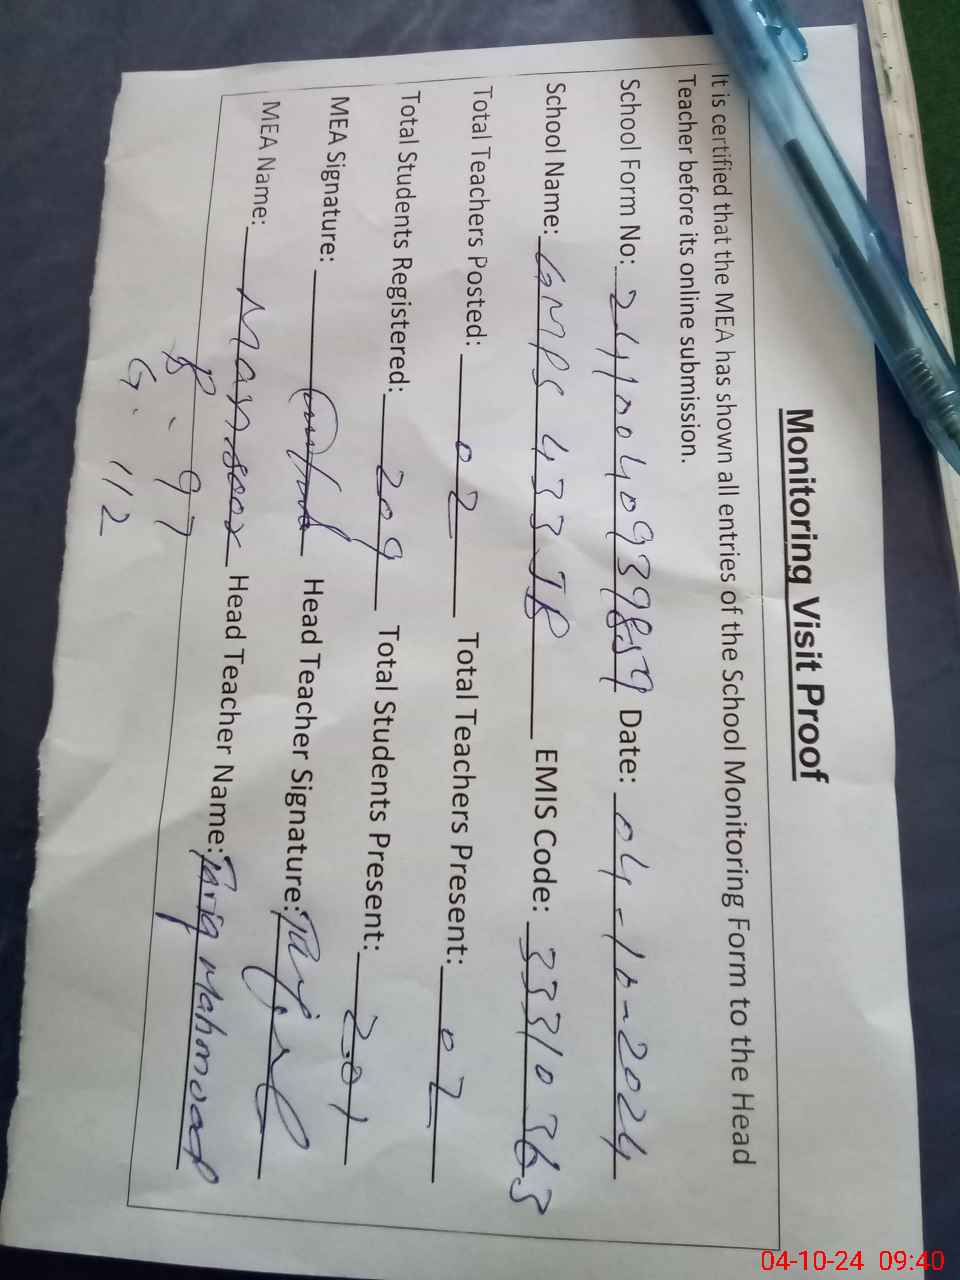 Monitoring Visit Proof
It is certified that the MEA has shown all entries of the School Monitoring Form to the Head
Teacher before its online submission.
School Form No: 24100409398859 Date: 04-10-2024
School Name: GMPS 433 JB EMIS Code: 33310363
Total Teachers Posted: 02 Total Teachers Present: 02
Total Students Registered: 209 Total Students Present: 201
MEA Signature: Head Teacher Signature:
MEA Name: Manzoor Head Teacher Name: Tariq Mahmood
B. 97
G. 112
04-10-24 09:40